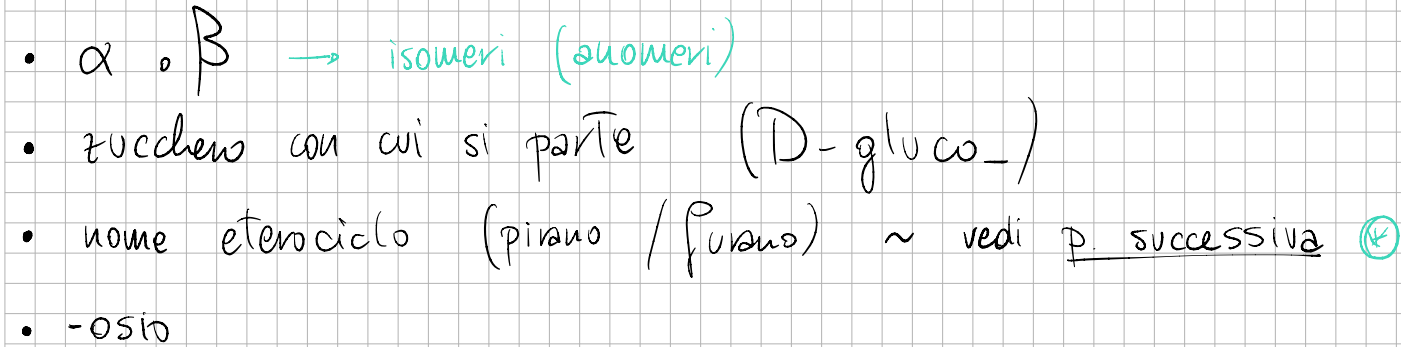 • α o β → isomeri (anomeri)
• zucchero con cui si parte (D-gluco_)
• nome eterociclo (pirano / furano) ~ vedi p. successiva *
• -osio